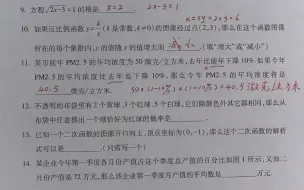 9. 方程√2x-3=1的根是 x=2 . 2x-3=1
k=xy=2×3=6
10. 如果反比例函数y=k/x(k是常数,k≠0)的图像经过点(2,3),那么在这个函数图像
所在的每个象限内,y的值随x的值增大而 减小 .(填"增大"或"减小")
11. 某市前年PM2.5的年均浓度为50微克/立方米,去年比前年下降10%.如果今年
PM2.5的年均浓度比去年也下降10%,那么今年PM2.5的年均浓度将是
40.5 微克/立方米. 50×(1-10%)×(1-10%)=40.5微克/立方米
12. 不透明的布袋里有2个黄球、3个红球、5个白球,它们除颜色外其它都相同,那么从
布袋中任意摸出一个球恰好为红球的概率是
13. 已知一个二次函数的图像开口向上,顶点坐标为(0,-1),那么这个二次函数的解析
式可以是 .(只需写一个)
14. 某企业今年第一季度各月份产值占这个季度总产值的百分比如图1所示,又知二
月份产值是72万元,那么该企业第一季度月产值的平均数是 万元.